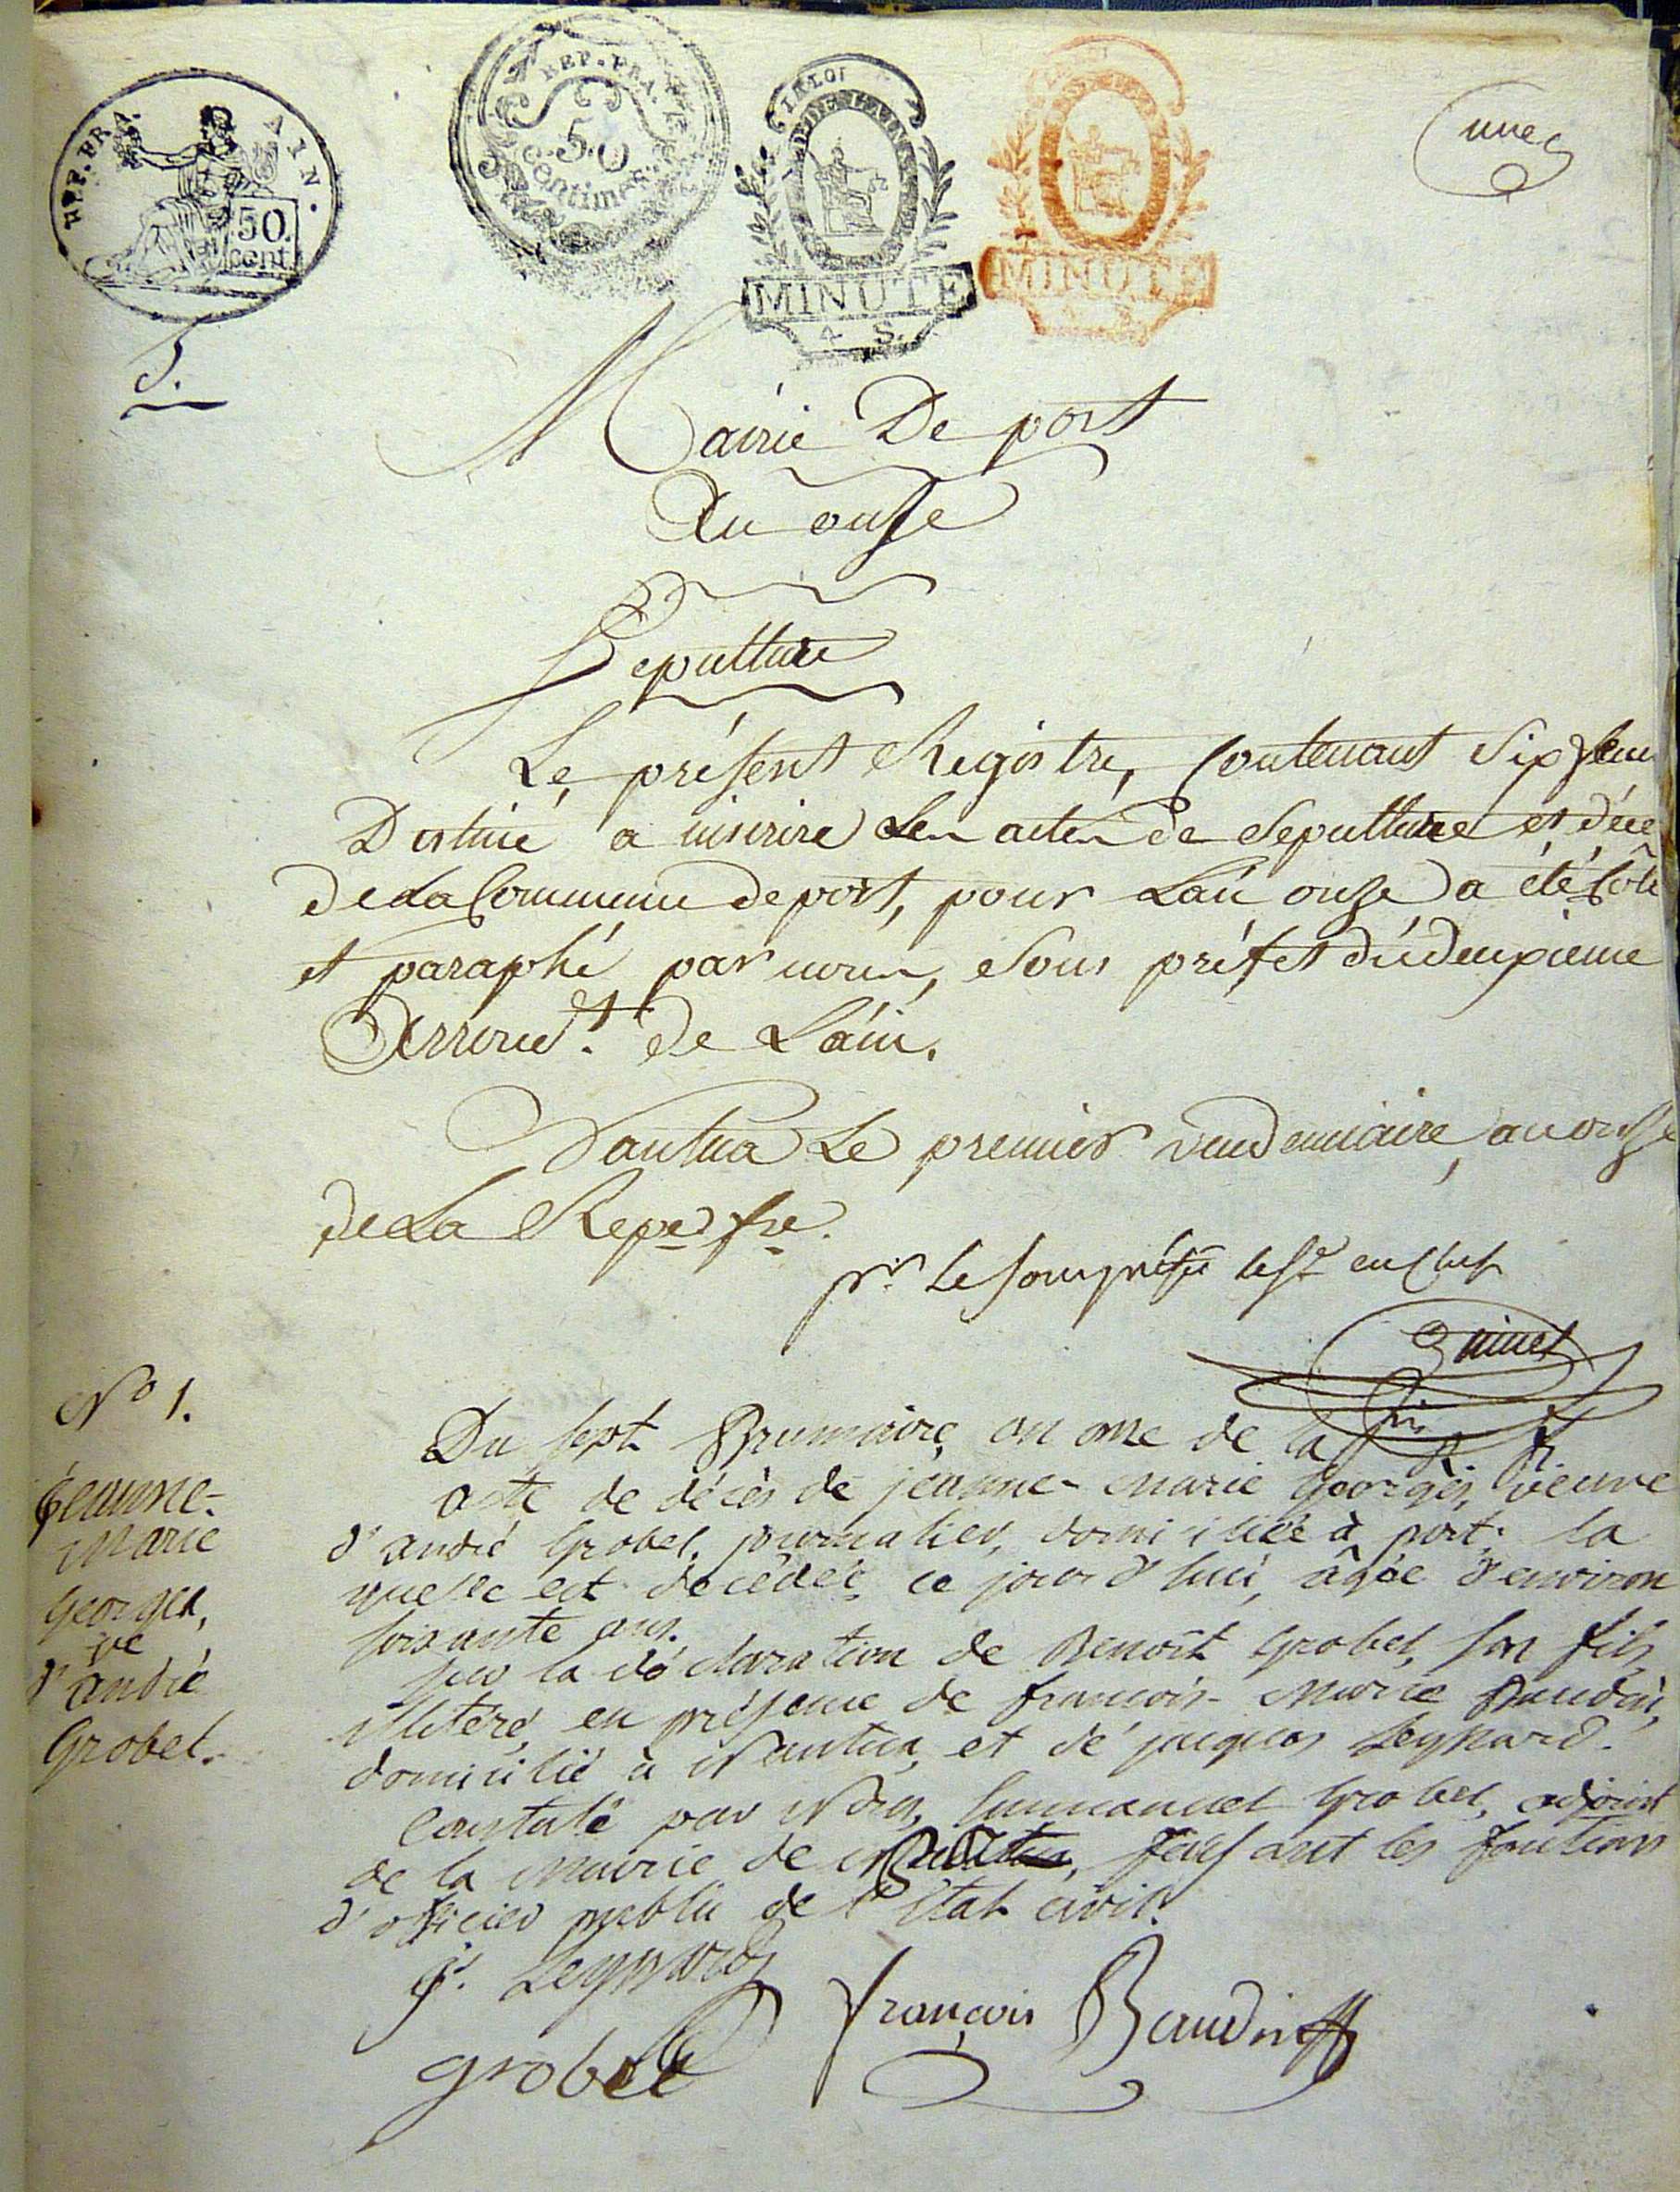 REP. FRA. AIN.
50
cent.
REP. FRA.
50
Centimes
LA LOI
DE DE L'AIN
MINUTE
4 S.
MINUTE
une
5.
Mairie De port
An onze
Sepulture
Le présent Registre, Contenant Six feu
Destiné a inscrire Les actes de Sepulture et déce
De La Commune de port, pour Lan onze a été Côté
et paraphé par nous, Sous préfet du deuxieme
Arront. de L'ain.
Nantua Le premier vendemiaire, an onze
de La Repe. fse.
pr. Le sous préfet le sre en chef
N° 1.
Jeanne-
Marie
Georges,
ve
d'andré
Grobet.
Du sept Brumaire, an onze de la R. f.
acte de décès de jeanne-marie Georges, veuve
d'andré Grobet, journalier, domiciliée à port; la
quelle est decédée, ce jourd'hui, âgée d'environ
soixante ans.
sur la déclaration de Benoît Grobet, son fils,
illitéré, en présence de françois-marie Baudin,
domicilié à Nantua, et de jacques Leynard.
Constaté par Nous, Emmanuel Grobet, adjoint
de la mairie de faisant les fonctions
d'officier public de l'Etat civil.
J. Leynard
françois Baudin
grobet